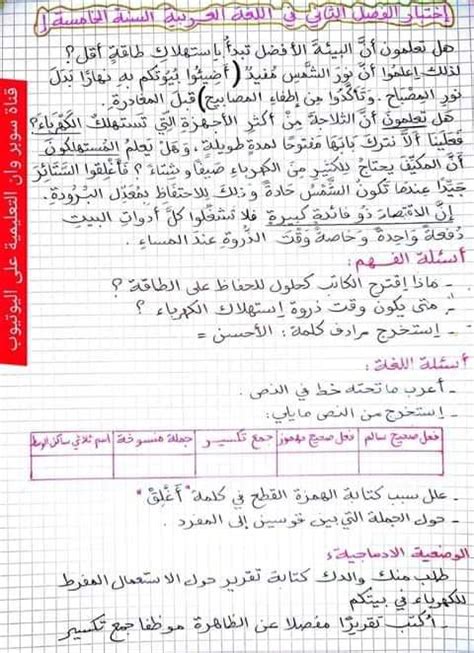 إختبار الفصل الثاني في اللغة العربية السنة الخامسة
هل تعلمون أنَّ البيئة الأفضل تبدأ باستهلاك طاقةٍ أقل؟
لذلك اعلموا أنَّ نور الشَّمس مُفيدٌ (أضِيئُوا بُيُوتَكُم به نهارًا بدل
نور المِصباح. وتأكّدُوا مِن إطفاءِ المصابيح) قبل المغادرة.
هل تعلمون أنَّ الثلاجةَ مِنْ أكثر الأجهزة التي تستهلك الكَهْرباء؟
فعلينا ألَّا نترك بابَهَا مفتوحًا لمدةٍ طويلة. وَهَلْ يعلم المُستهلكون
أنَّ المكيِّف يحتاجُ للكثير مِنَ الكهرباء صيفًا وشتاءً؟ فأغلقُوا السَّتائر
جيّدًا عندما تكون الشَّمْسُ حادةً وذلك للاحتفاظ بمُعدّل البُرودة.
إنَّ الاقتصادَ ذو فائدةٍ كبيرةٍ فلا تشغّلوا كلَّ أدواتِ البيتِ
دُفعةً واحِدةً وَخاصةً وَقْتَ الذُّروة عند المساء.
أسئلة الفهم:
- ماذا إقترح الكاتب كحلول للحفاظ على الطاقة؟
- متى يكون وقت ذروة إستهلاك الكهرباء؟
- إستخرج مرادف كلمة: الأحسن =
أسئلة اللغة:
- أعرب ما تحته خط في النص.
- إستخرج من النص ما يلي:
فعل صحيح سالم | فعل صحيح مهموز | جمع تكسير | جملة منسوخة | اسم ثلاثي ساكن الوسط
- علل سبب كتابة الهمزة القطع في كلمة "أَغْلِقْ"
- حول الجملة التي بين قوسين إلى المفرد.
الوضعية الادماجية:
طلب منك والدك كتابة تقرير حول الاستعمال المفرط
للكهرباء في بيتكم
- أكتب تقريرًا مفصلا عن الظاهرة موظفا جمع تكسير
قناة سوبر وان التعليمية على اليوتيوب